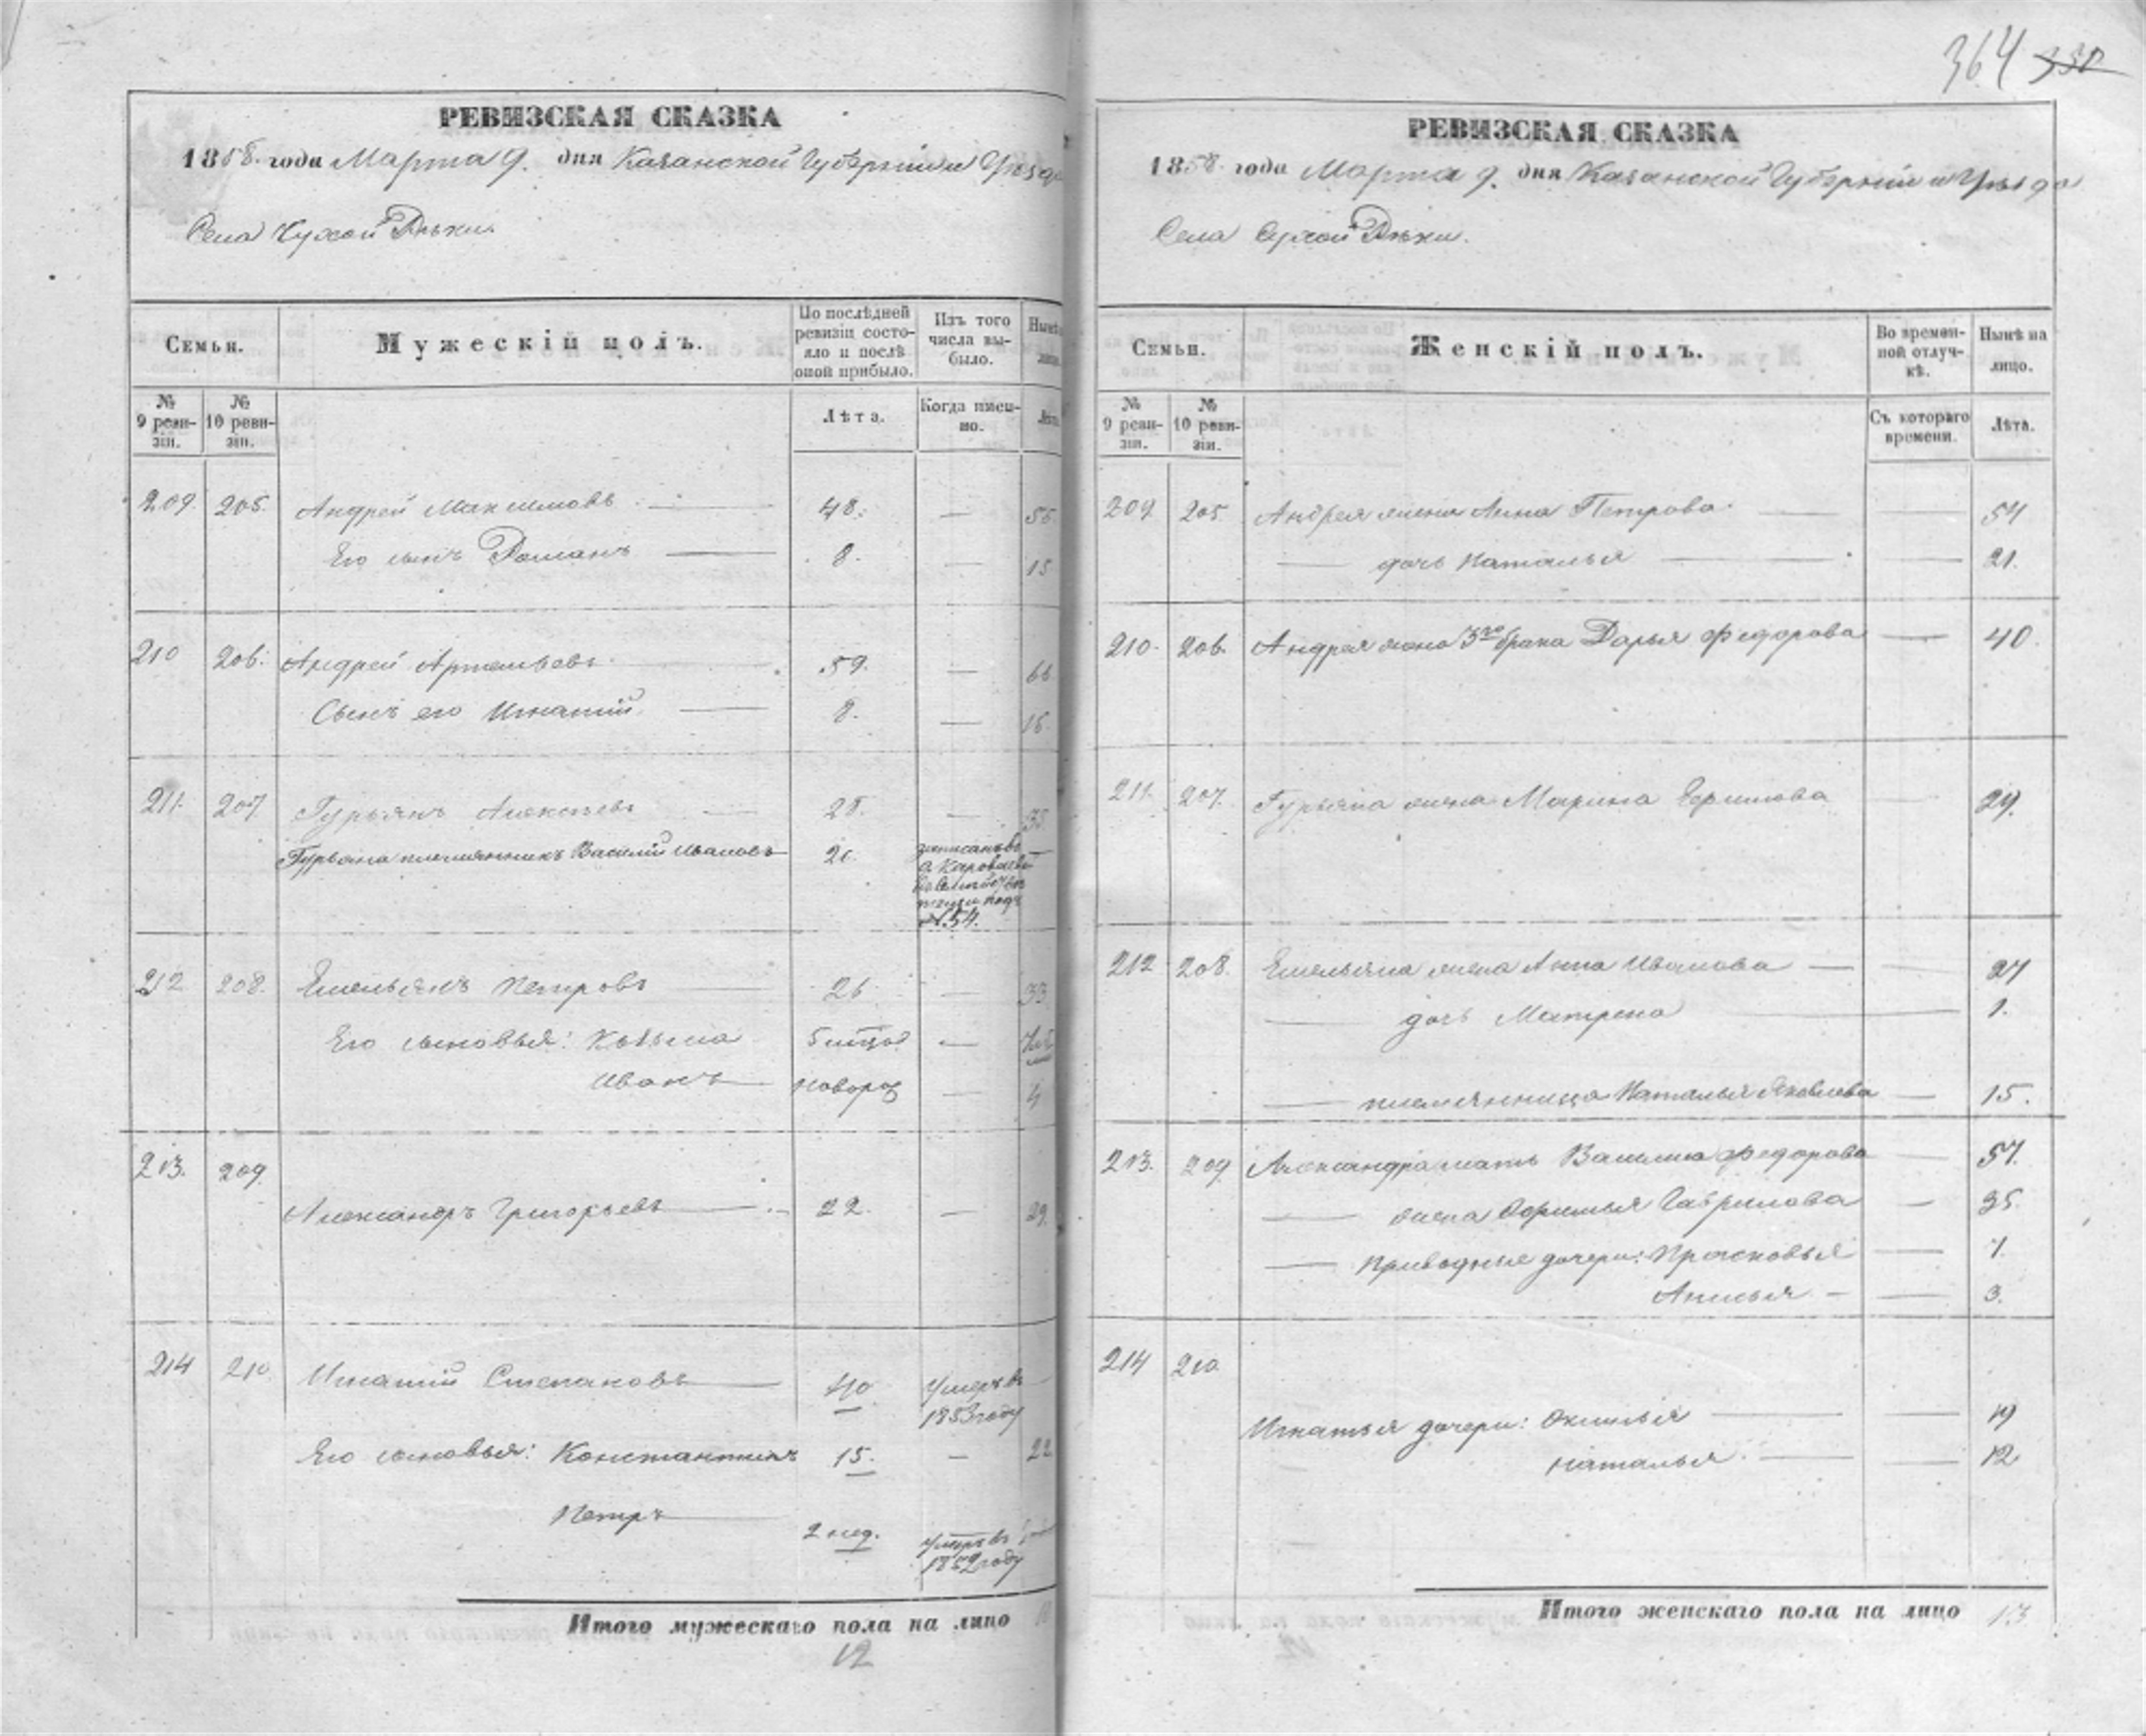 364 338
РЕВИЗСКАЯ СКАЗКА
1858 года Марта 9. дня Казанской Губерніи и Уѣзда
Села Сухой Рѣки.
Семьи.
Мужескій полъ.
По послѣдней ревизіи состо-
яло и послѣ оной прибыло.
Изъ того числа вы-
было.
Нынѣ
№ 9 реви-
зіи.
№ 10 реви-
зіи.
Лѣта.
Когда имен-
но.
209. 205. Андрей Максимовъ 48. — 55.
Его сынъ Романъ 8. — 15
210 206. Андрей Артемьевъ 59. — 66
Сынъ его Игнатій 8. — 15.
211. 207 Гурьянъ Алексѣевъ 28. — 35
Гурьяна племянникъ Василій Ивановъ 20. —
записанъ въ
подъ
№ 54.
212 208. Емельянъ Петровъ 26 — 33
Его сыновья: Козьма —
Иванъ новорож — 4
213. 209
Александръ Григорьевъ 22. — 29.
214 210 Игнатій Степановъ 40 Умеръ въ —
1853 году
Его сыновья: Константинъ 15. — 22
Петръ 2 нед. Умеръ въ
1852 году
Итого мужескаго пола на лицо
12
РЕВИЗСКАЯ СКАЗКА
1858 года Марта 9. дня Казанской Губерніи и Уѣзда
Села Сухой Рѣки.
Семьи.
Женскій полъ.
Во времен-
ной отлуч-
кѣ.
Нынѣ на лицо.
№ 9 реви-
зіи.
№ 10 реви-
зіи.
Съ котораго времени.
Лѣта.
209 205 Андрея жена Анна Петрова — 54
— дочь Наталья — 21.
210. 206. Андрея жена 3го брака Дарья Федорова — 40.
211. 207. Гурьяна жена Марина Ефимова — 29.
212 208. Емельяна жена Анна Иванова — 27
— дочь Матрена — 1.
— племянница Наталья Яковлева — 15.
213. 209 Александра мать Василиса Федорова — 57.
— жена Афимья Гаврилова — 35.
— Приводныя дочери: Прасковья — 7.
Анисья — 3.
214 210
Игнатья дочери: Акинья — 19
Наталья — 12
Итого женскаго пола на лицо 13